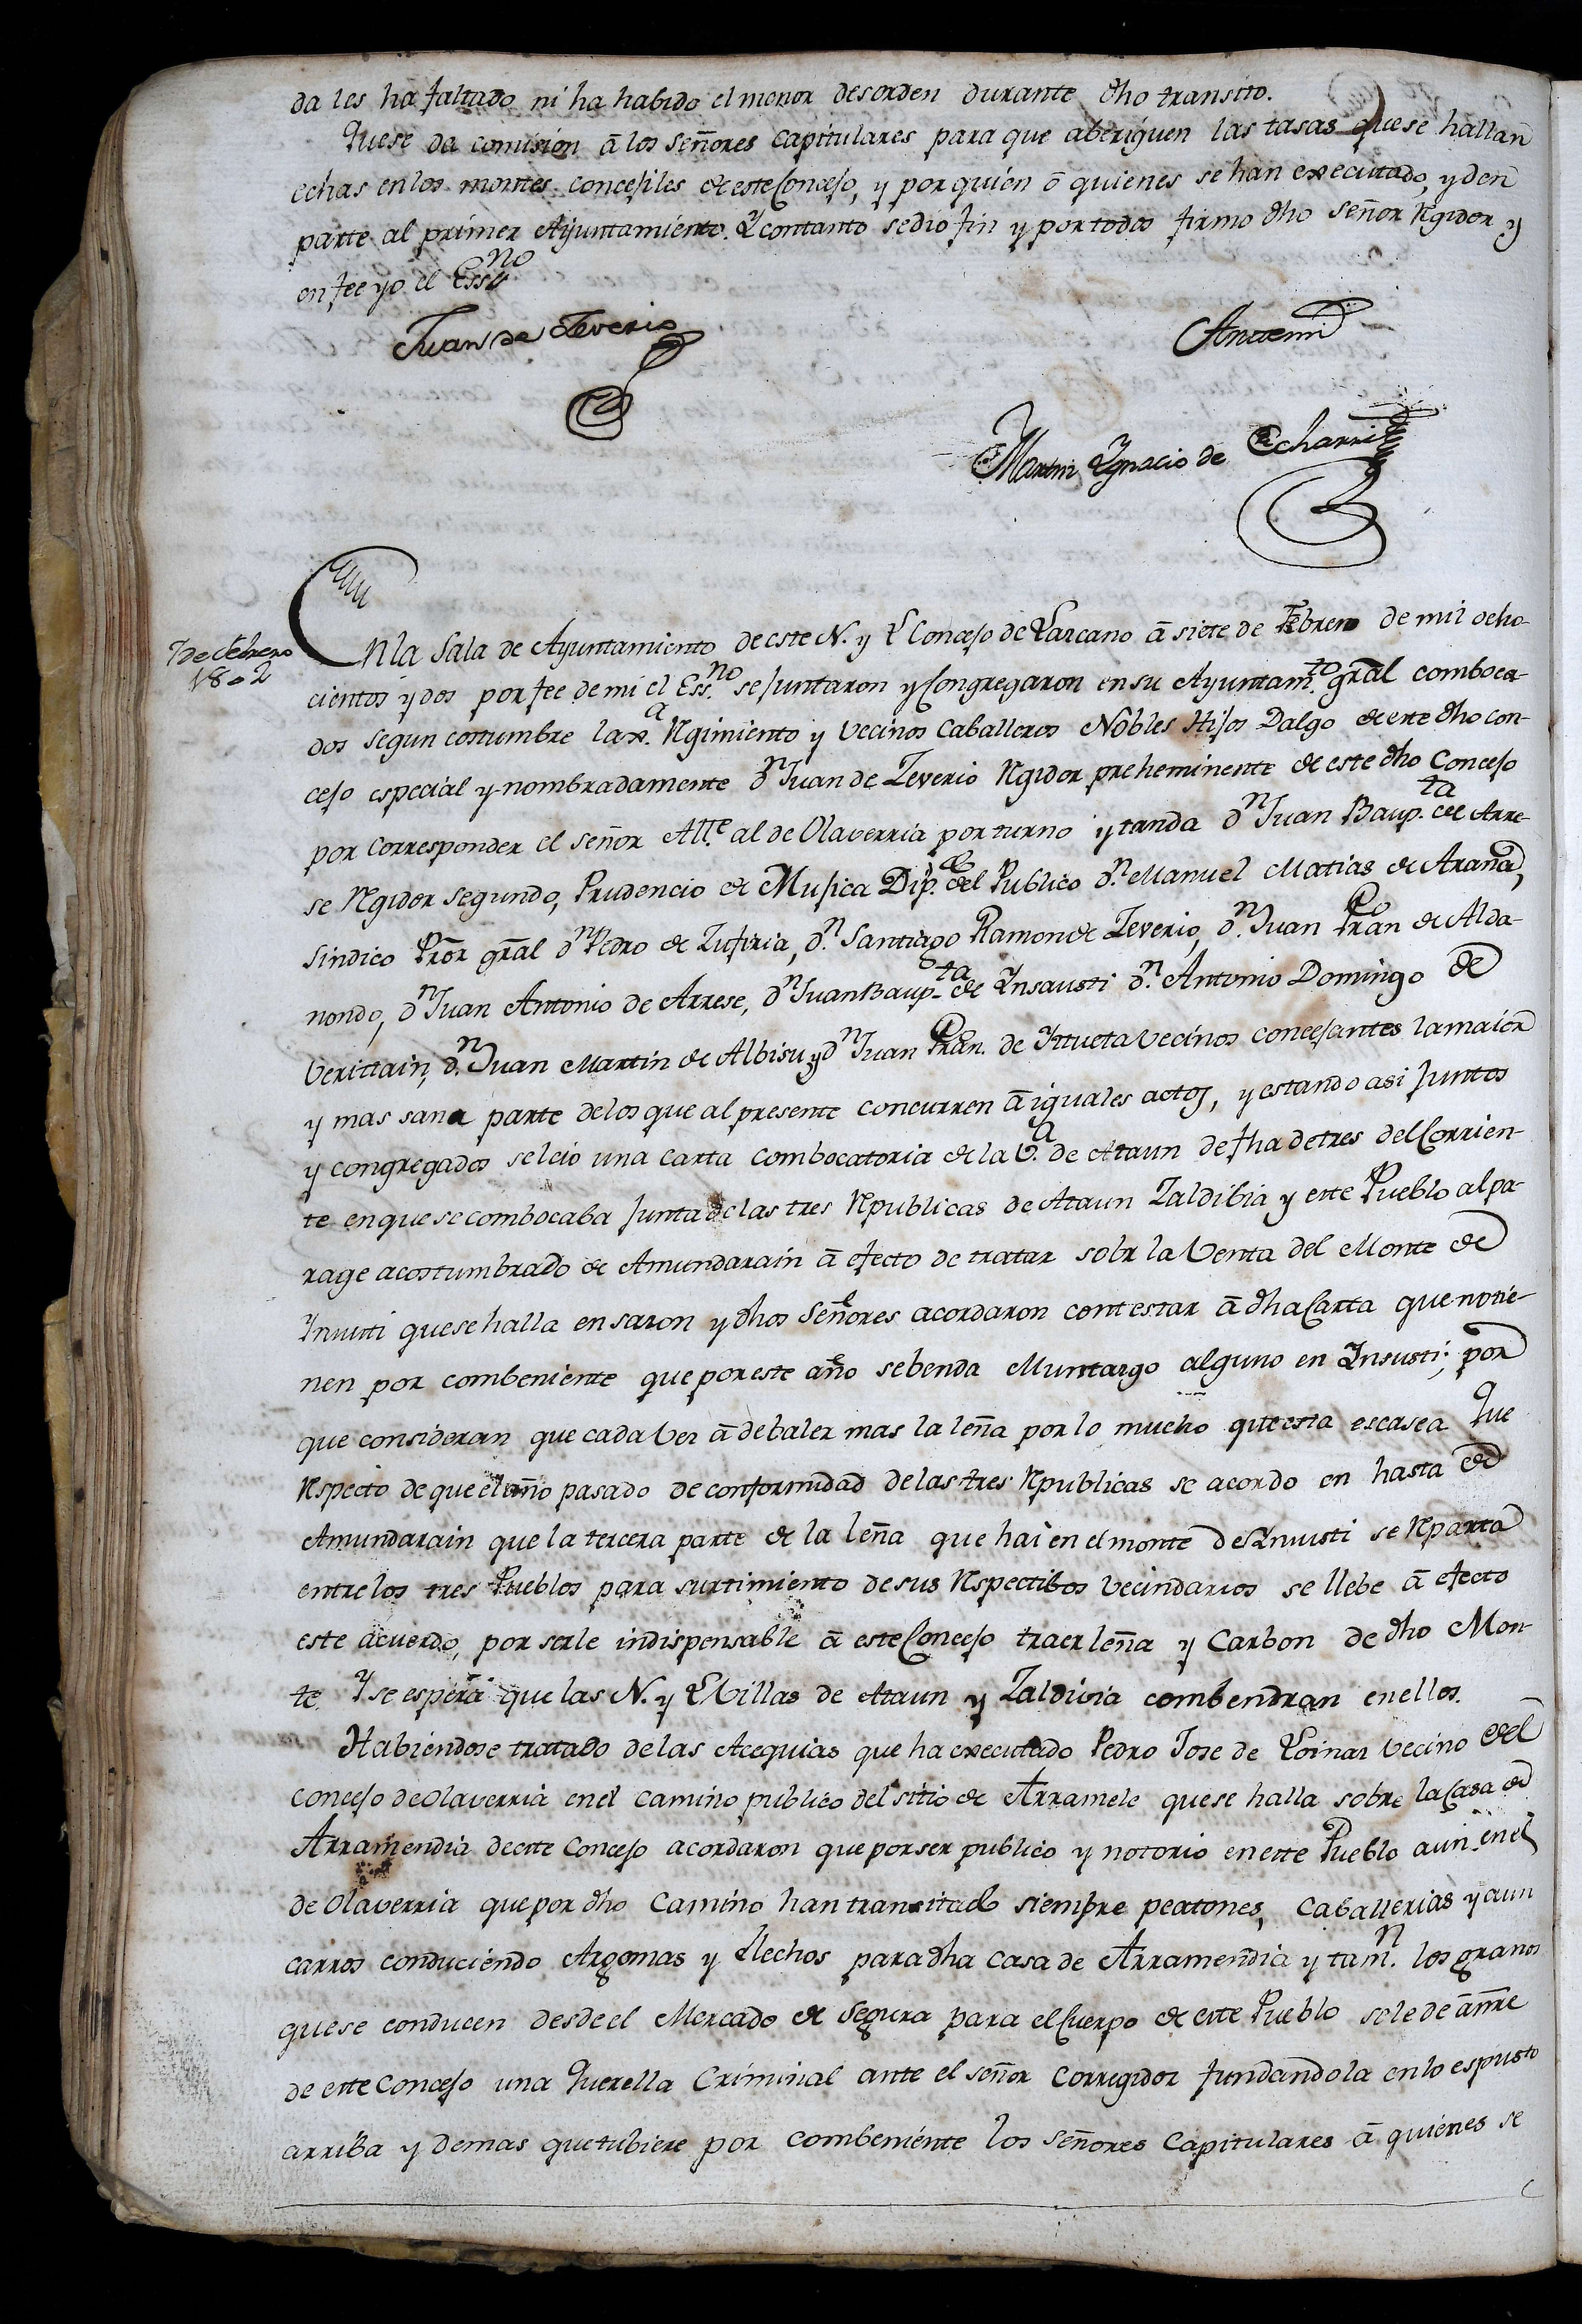 da les ha faltado ni ha habido el menor desorden durante dho transito.
Quese da comision â los señores capitulares para que aberiguen las tasas quese hallan
echas en los montes concejiles de este Concejo, y por quien ô quienes se han executado, y den
parte al primer Ayuntamiento. Y contanto sedio fin y por todos firmo dho señor Regidor y
en fee yo el Essno
Juan de Zeverio
Antemi
Martin Ygnacio de Echarri
7 de Febrero
1802
En la Sala de Ayuntamiento de este N. y L Concejo de Lazcano â siete de Febrero de mil ocho-
cientos y dos por fee de mi el Ess.no se juntaron y Congregaron en su Ayuntam.to gral comboca-
dos segun costumbre la Regimiento y Vecinos Caballeros Nobles Hijos Dalgo de este dho con-
cejo especial y nombradamente dn Juan de Zeverio Regidor preheminente de este dho Concejo
por corresponder el señor Alle. al de Olaverria por turno y tanda dn Juan Baup.ta de Arre-
se Regidor segundo, Prudencio de Mujica Dip. del Publico dn. Manuel Matias de Arana,
sindico Pror gral dn Pedro de Zufiria, dn. Santiago Ramon de Zeverio, dn. Juan Fran.co de Alda-
nondo, dn Juan Antonio de Arrese, dn Juan Baup.ta de Ynsausti dn. Antonio Domingo de
Verittain, dn. Juan Martin de Albisu, y dn Juan Fran.co de Ytueta Vecinos concejantes la maior
y mas sana parte delos que al presente concurren â iguales actos, y estando asi Juntos
y congregados se leio una carta combocatoria de la V.a de Ataun de fha de tres del Corrien-
te en que se combocaba Junta de las tres Republicas de Ataun Zaldibia y este Pueblo al pa-
rage acostumbrado de Amundarain â efecto de tratar sobr la Venta del Monte de
quese halla en sazon y dhos Señores acordaron contestar â dha Carta que no tie-
nen por combeniente que por este año sebenda Muntazgo alguno en Ynsusti; por
que consideran que cada vez â de baler mas la leña por lo mucho que esta escasea Que
Respecto de que el año pasado de conformidad de las tres Republicas se acordo en hasta de
Amundarain que la tercera parte de la leña que hai en el monte de Ynsusti se Reparta
entre los tres Pueblos para surtimiento de sus Respectibos Vecindarios se llebe â efecto
este acuerdo, por serle indispensable â este Concejo traer leña y Carbon de dho Mon-
te. Y se espera que las N. y L Villas de Ataun y Zaldivia combendran en ellos.
Habiendose tratado de las Acequias que ha executado Pedro Jose de Loinaz Vecino del
Concejo de Olaverria en el camino publico del sitio de Arramele quese halla sobre la Casa de
Arramendia de este Concejo acordaron que por ser publico y notorio en este Pueblo aun en el
de Olaverria que por dho Camino han transitado siempre peatones, Caballerias y aun
carros conduciendo Argomas y Elechos para dha casa de Arramendia y tamn. los granos
quese conducen desde el Mercado de Segura para el Cuerpo de este Pueblo se le dé ânre
de este Concejo una Querella Criminal ante el señor Corregidor fundandola en lo espusto
arriba y demas que tubiere por combeniente los señores Capitulares â quienes se